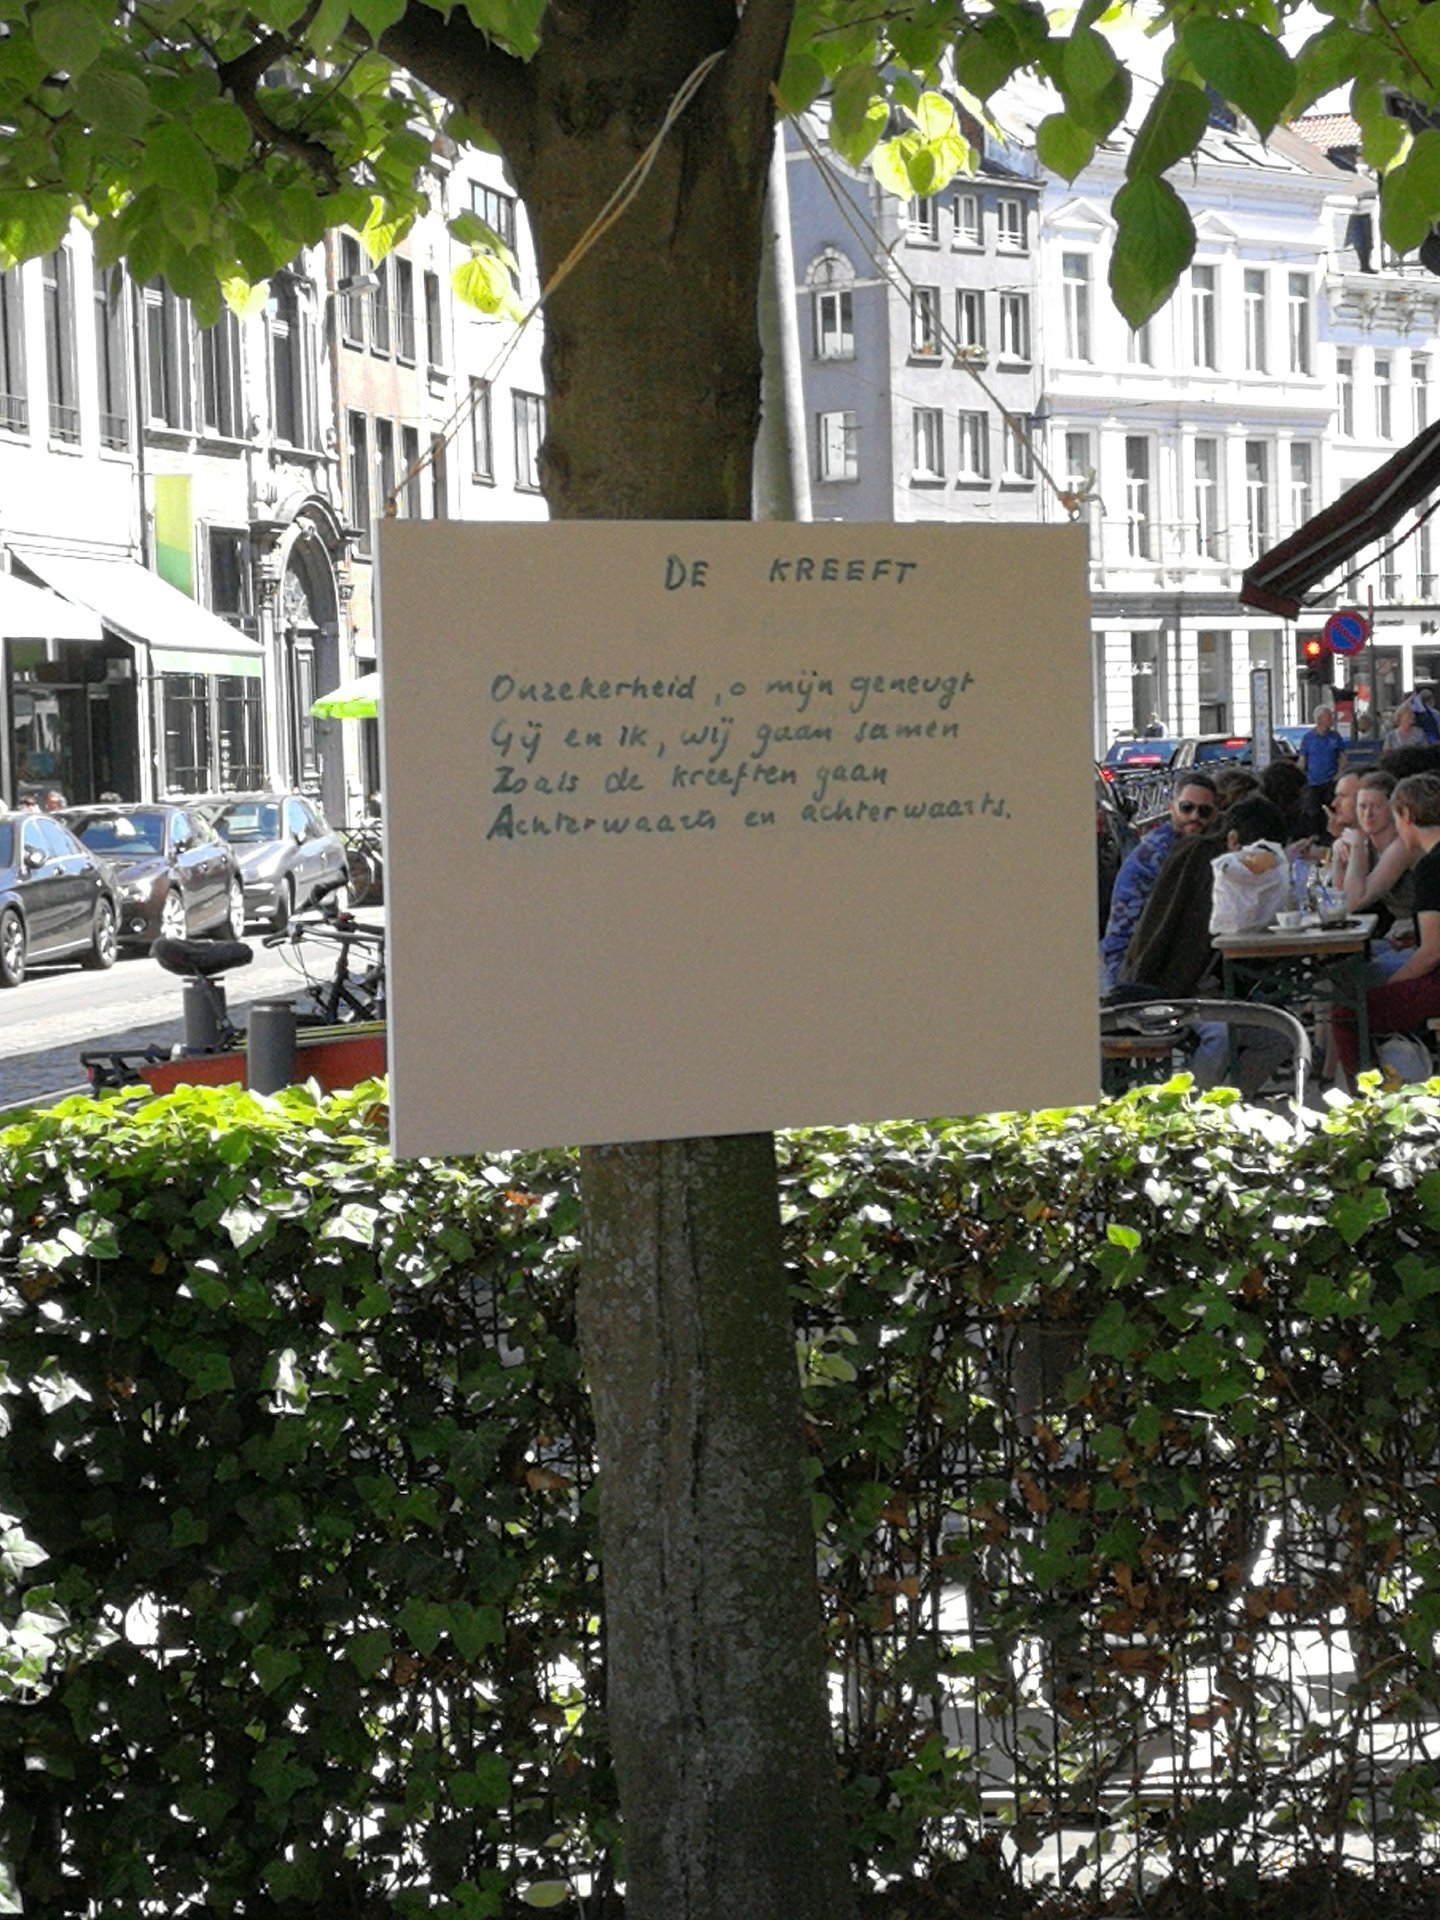 DE KREEFT
Onzekerheid, o mijn geneugt
Gij en ik, wij gaan samen
Zoals de kreeften gaan
Achterwaarts en achterwaarts.